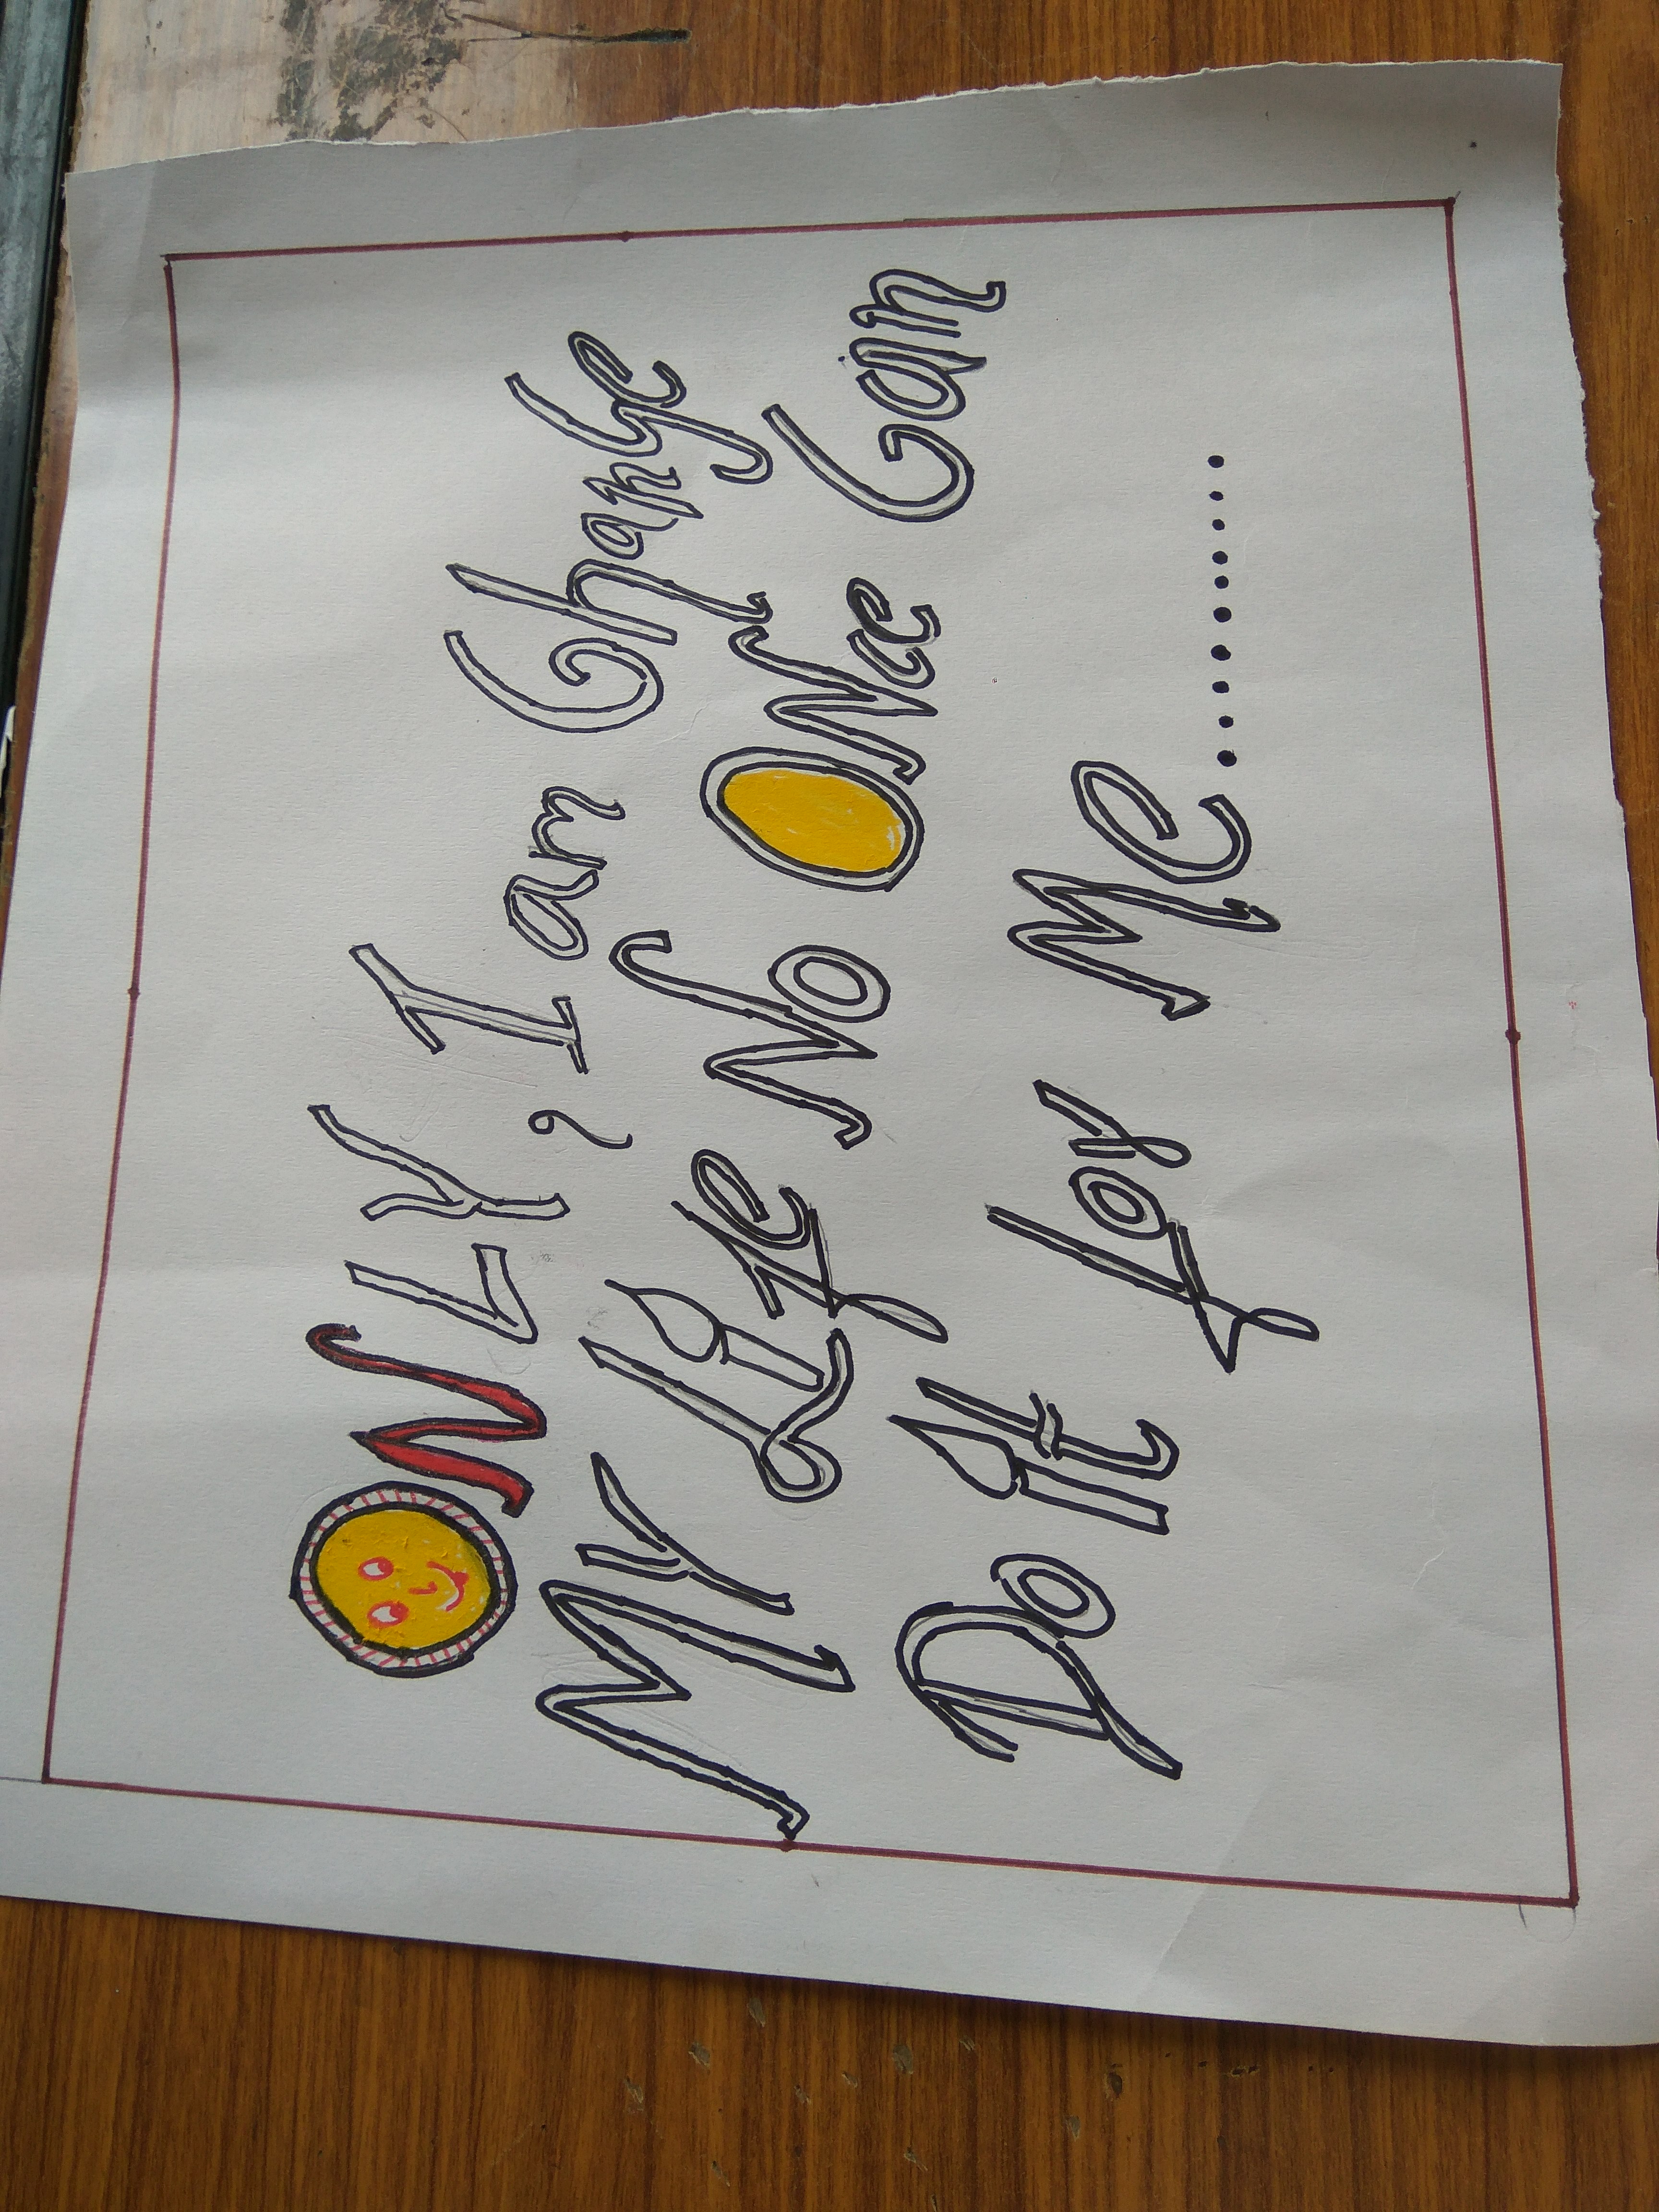 ONLY, I am Change
My Life No ONce Can
Do it for Me..........